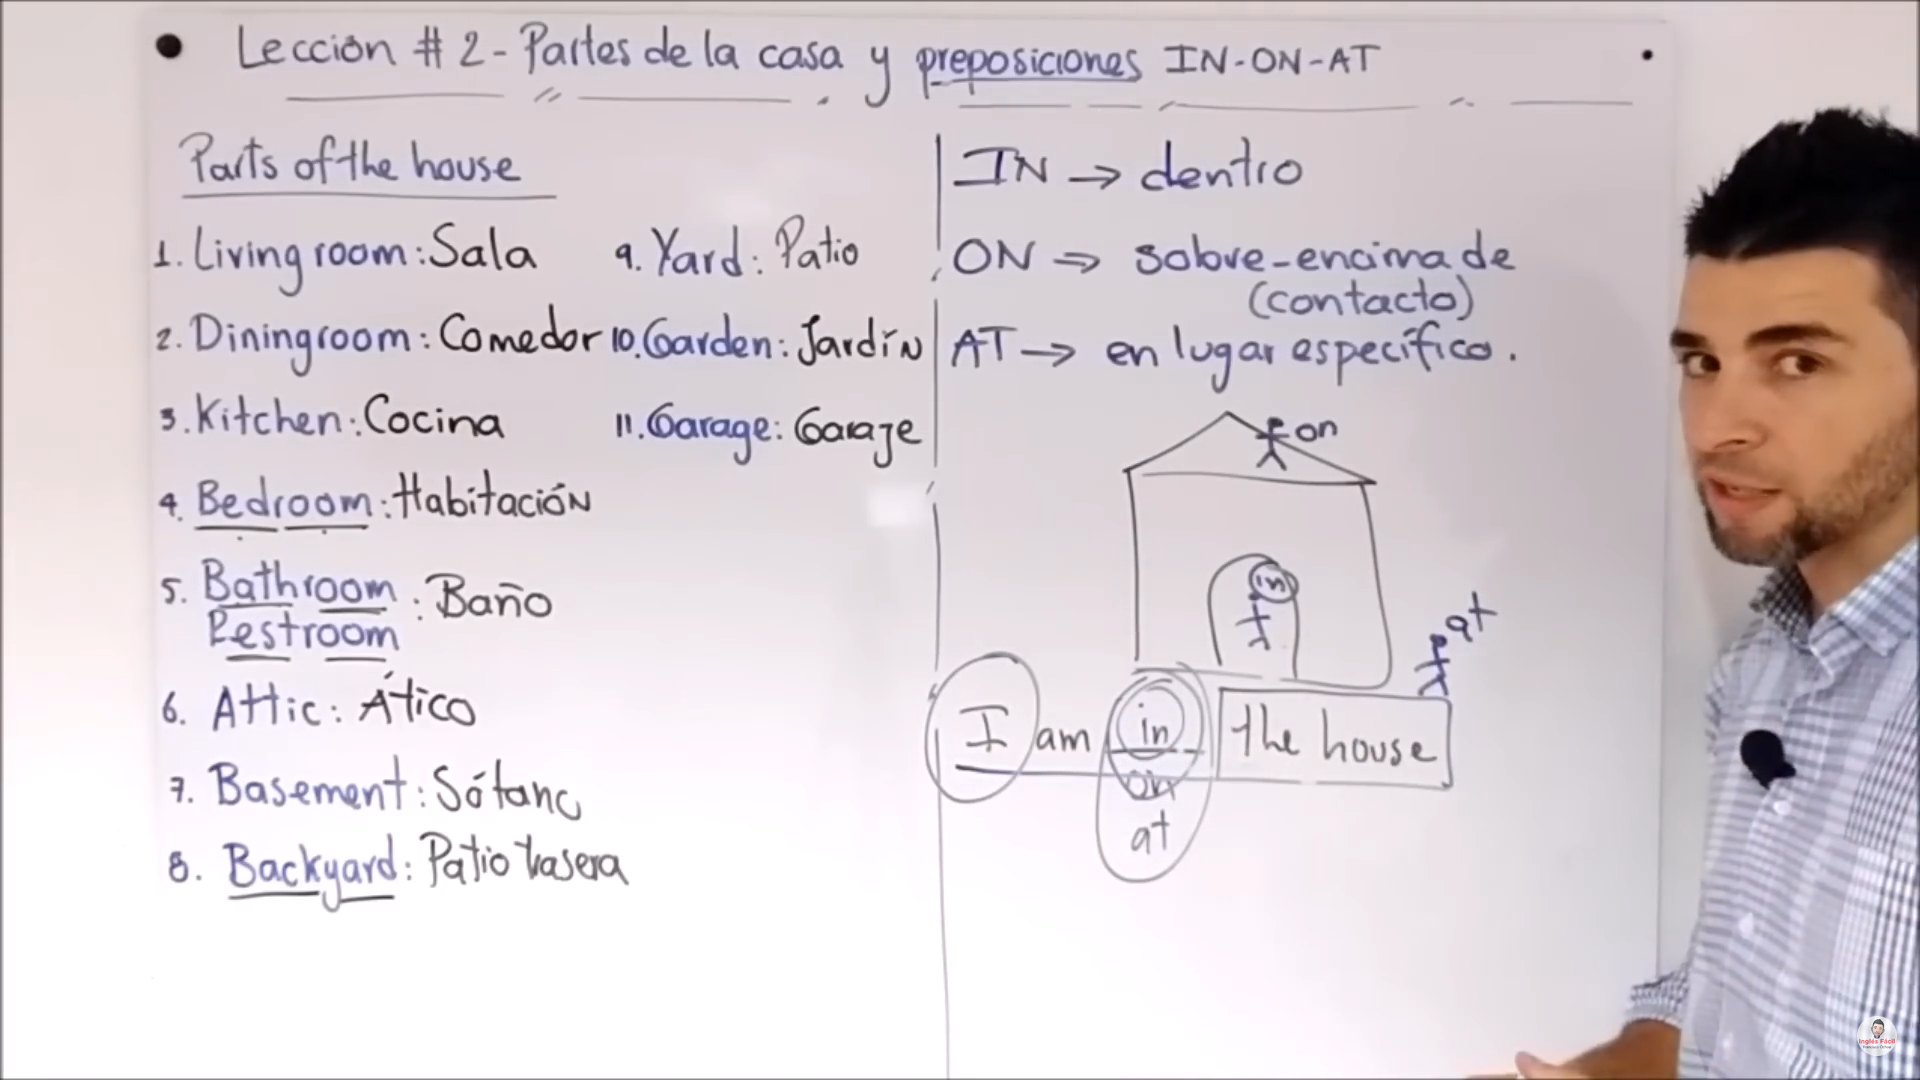 Lección # 2 - Partes de la casa y preposiciones IN-ON-AT
Parts of the house
1. Living room: Sala
2. Dining room: Comedor
3. Kitchen: Cocina
4. Bedroom: Habitación
5. Bathroom
Restroom : Baño
6. Attic: Ático
7. Basement: Sótano
8. Backyard: Patio trasera
9. Yard: Patio
10. Garden: Jardín
11. Garage: Garaje
IN → dentro
ON → sobre-encima de
(contacto)
AT → en lugar específico.
on
in
at
I am in the house
on
at
Inglés Fácil